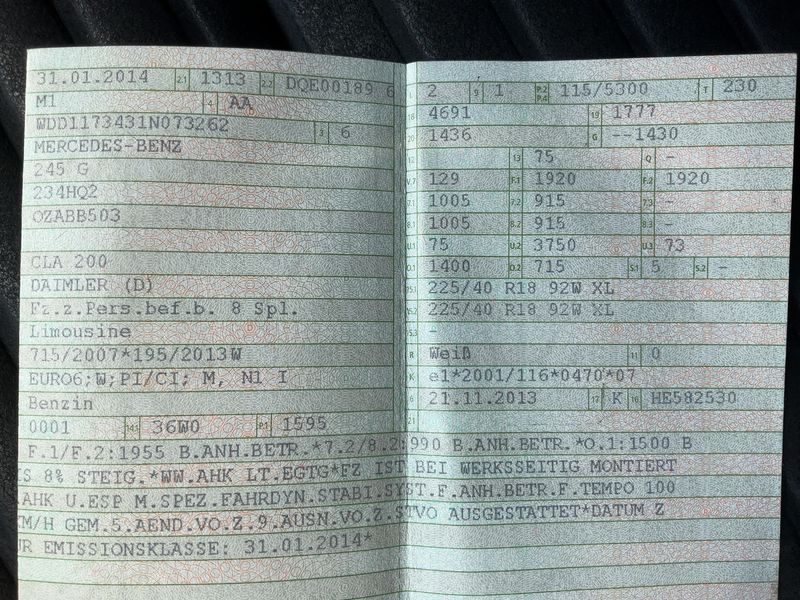 31.01.2014 2.1 1313 2.2 DQE00189 6
M1 4 AA
WDD1173431N073262 3 6
MERCEDES-BENZ
245 G
234HQ2
OZABB503
CLA 200
DAIMLER (D)
Fz.z.Pers.bef.b. 8 Spl.
Limousine
715/2007*195/2013W
EURO6;W;PI/CI; M, N1 I
Benzin
0001 14.1 36W0 P.1 1595
2 9 1 P.2 P.4 115/5300 T 230
18 4691 19 1777
20 1436 G --1430
12 13 75 Q -
V.7 129 F.1 1920 F.2 1920
7.1 1005 7.2 915 7.3 -
8.1 1005 8.2 915 8.3 -
U.1 75 U.2 3750 U.3 73
O.1 1400 O.2 715 S.1 5 S.2 -
15.1 225/40 R18 92W XL
15.2 225/40 R18 92W XL
15.3 -
R Weiß 11 0
K e1*2001/116*0470*07
6 21.11.2013 17 K 16 HE582530
21
F.1/F.2:1955 B.ANH.BETR.*7.2/8.2:990 B.ANH.BETR.*O.1:1500 B
IS 8% STEIG.*WW.AHK LT.EGTG*FZ IST BEI WERKSSEITIG MONTIERT
.AHK U.ESP M.SPEZ.FAHRDYN.STABI.SYST.F.ANH.BETR.F.TEMPO 100
KM/H GEM.5.AEND.VO.Z.9.AUSN.VO.Z.STVO AUSGESTATTET*DATUM Z
UR EMISSIONSKLASSE: 31.01.2014*